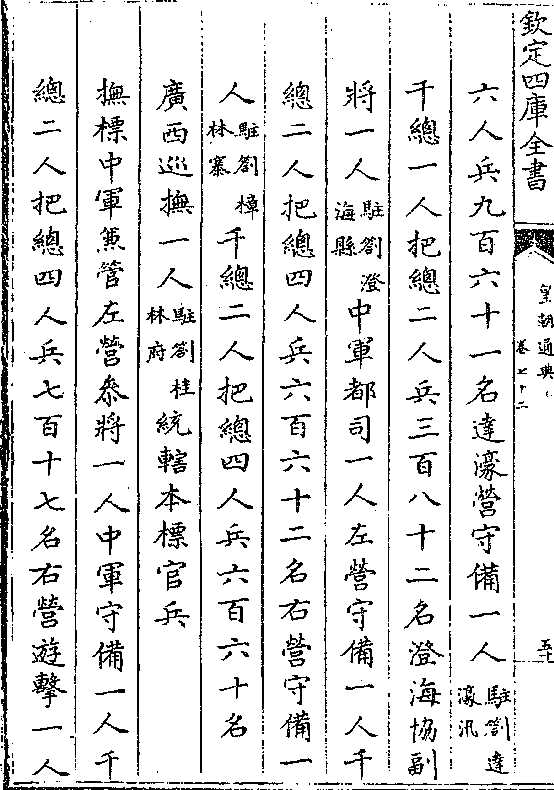 欽定四庫全書
皇朝通典
卷七十二
六人兵九百六十一名達濠營守備一人駐劄達濠汛
千總一人把總二人兵三百八十二名澄海協副
將一人駐劄澄海縣中軍都司一人左營守備一人千
總二人把總四人兵六百六十二名右營守備一
人駐劄樟林寨千總二人把總四人兵六百六十名
廣西巡撫一人駐劄桂林府統轄本標官兵
撫標中軍兼管左營叅將一人中軍守備一人千
總二人把總四人兵七百十七名右營遊擊一人